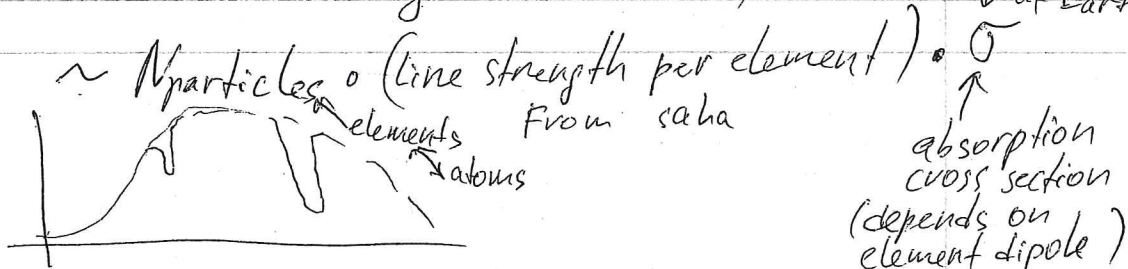 at Earth
~ Nparticles • (line strength per element) • σ
elements
From saha
atoms
absorption
cross section
(depends on
element dipole)